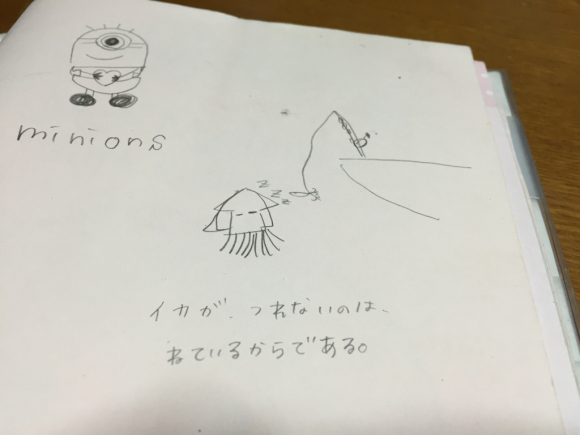 minions
z
z
z
イカが、つれないのは、
ねているからである。